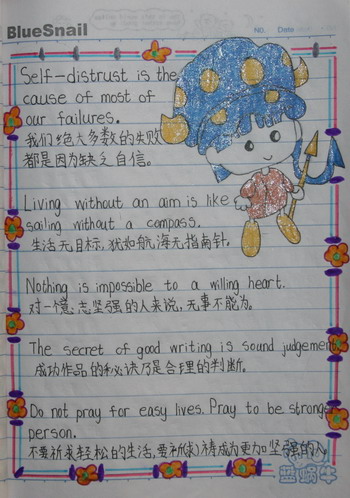 BlueSnail
No.
Date
Self-distrust is the
cause of most of
our failures.
我们绝大多数的失败
都是因为缺乏自信。
Living without an aim is like
sailing without a compass.
生活无目标，犹如航海无指南针。
Nothing is impossible to a willing heart.
对一个意志坚强的人来说，无事不能为。
The secret of good writing is sound judgement
成功作品的秘诀乃是合理的判断。
Do not pray for easy lives. Pray to be stronger
person.
不要祈求轻松的生活，要祈求祷成为更加坚强的人
蓝蜗牛